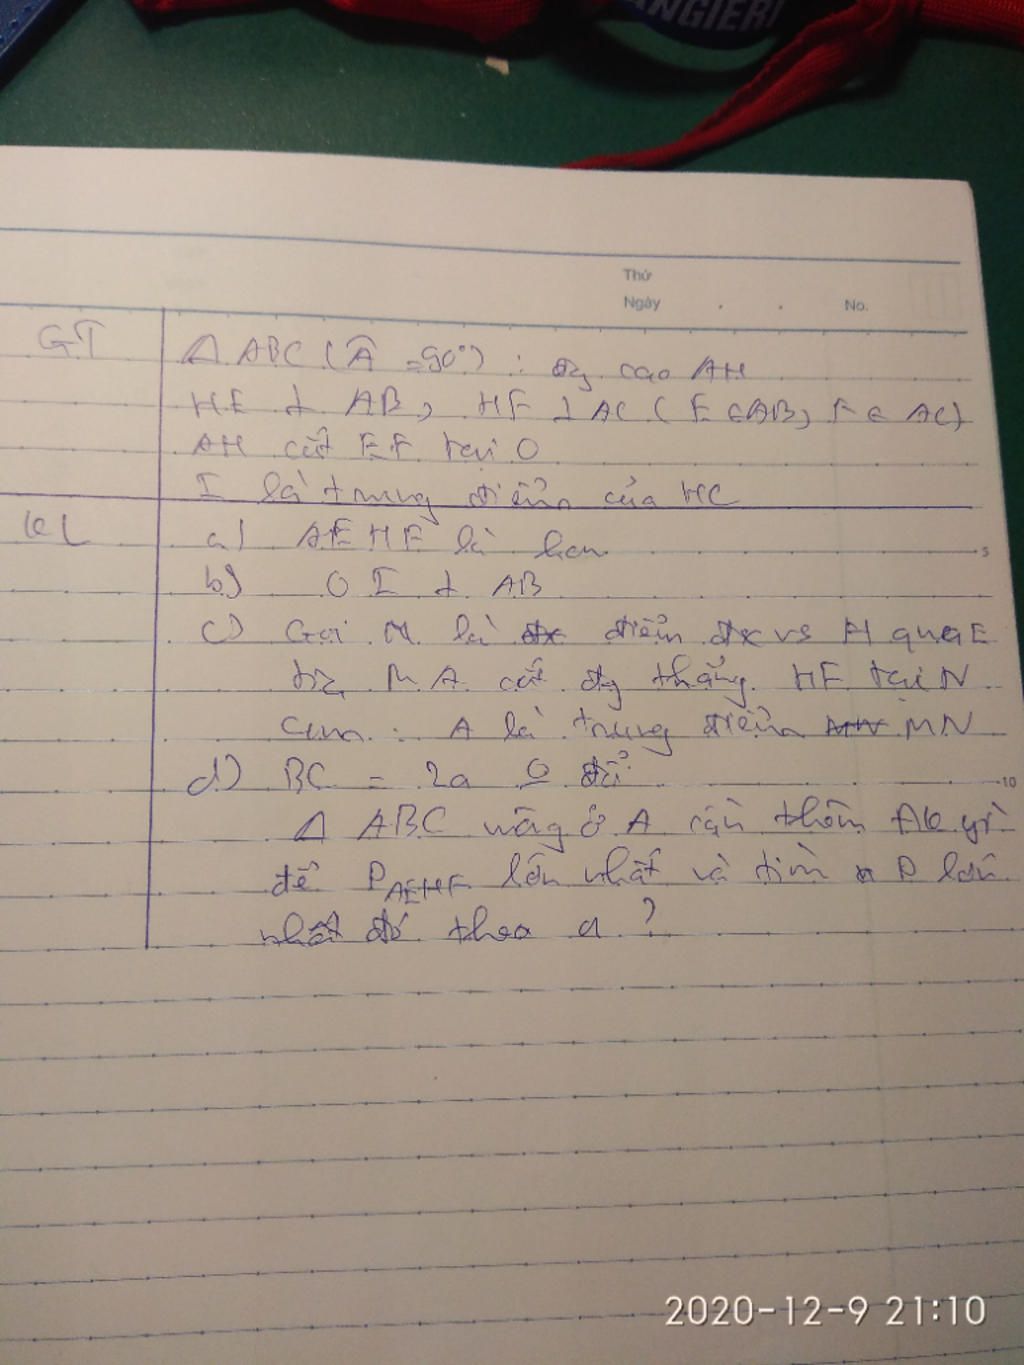 ANGIERI
Thứ
Ngày . . No.
GT
Δ ABC (Â = 90°) : đg cao AH
HE ⊥ AB, HF ⊥ AC (E ∈ AB, F ∈ AC)
AH cắt EF tại O
I là trung điểm của HC
KL
a) AEHF là hcn
5
b) OI ⊥ AB
c) Gọi M là điểm đx vs H qua E
đg MA cắt đg thẳng HF tại N
cm : A là trung điểm MN
d) BC = 2a O đổi
10
Δ ABC vuông ở A cần thêm ĐK gì
để P_AEHF lớn nhất và tìm P lớn
nhất đó theo a ?
2020-12-9 21:10